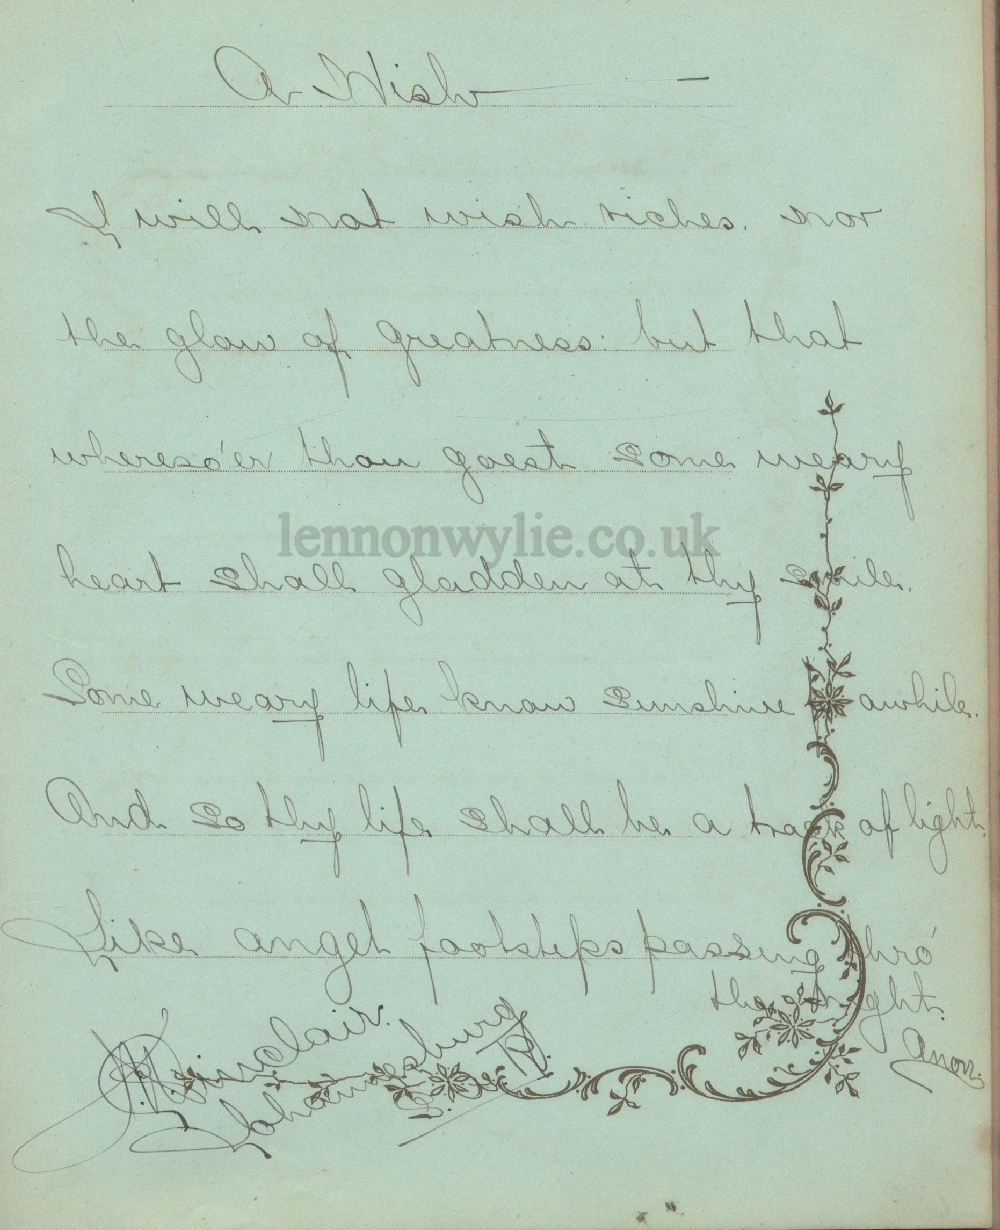 A Wish
I will not wish riches. nor
the glow of greatness. but that
whereso'er thou goest some weary
heart shall gladden at thy smile.
lennonwylie.co.uk
Some weary life know sunshine awhile.
And so thy life shall be a track of light
Like angel footsteps passing thro'
the night.
Anon.
Sinclair.